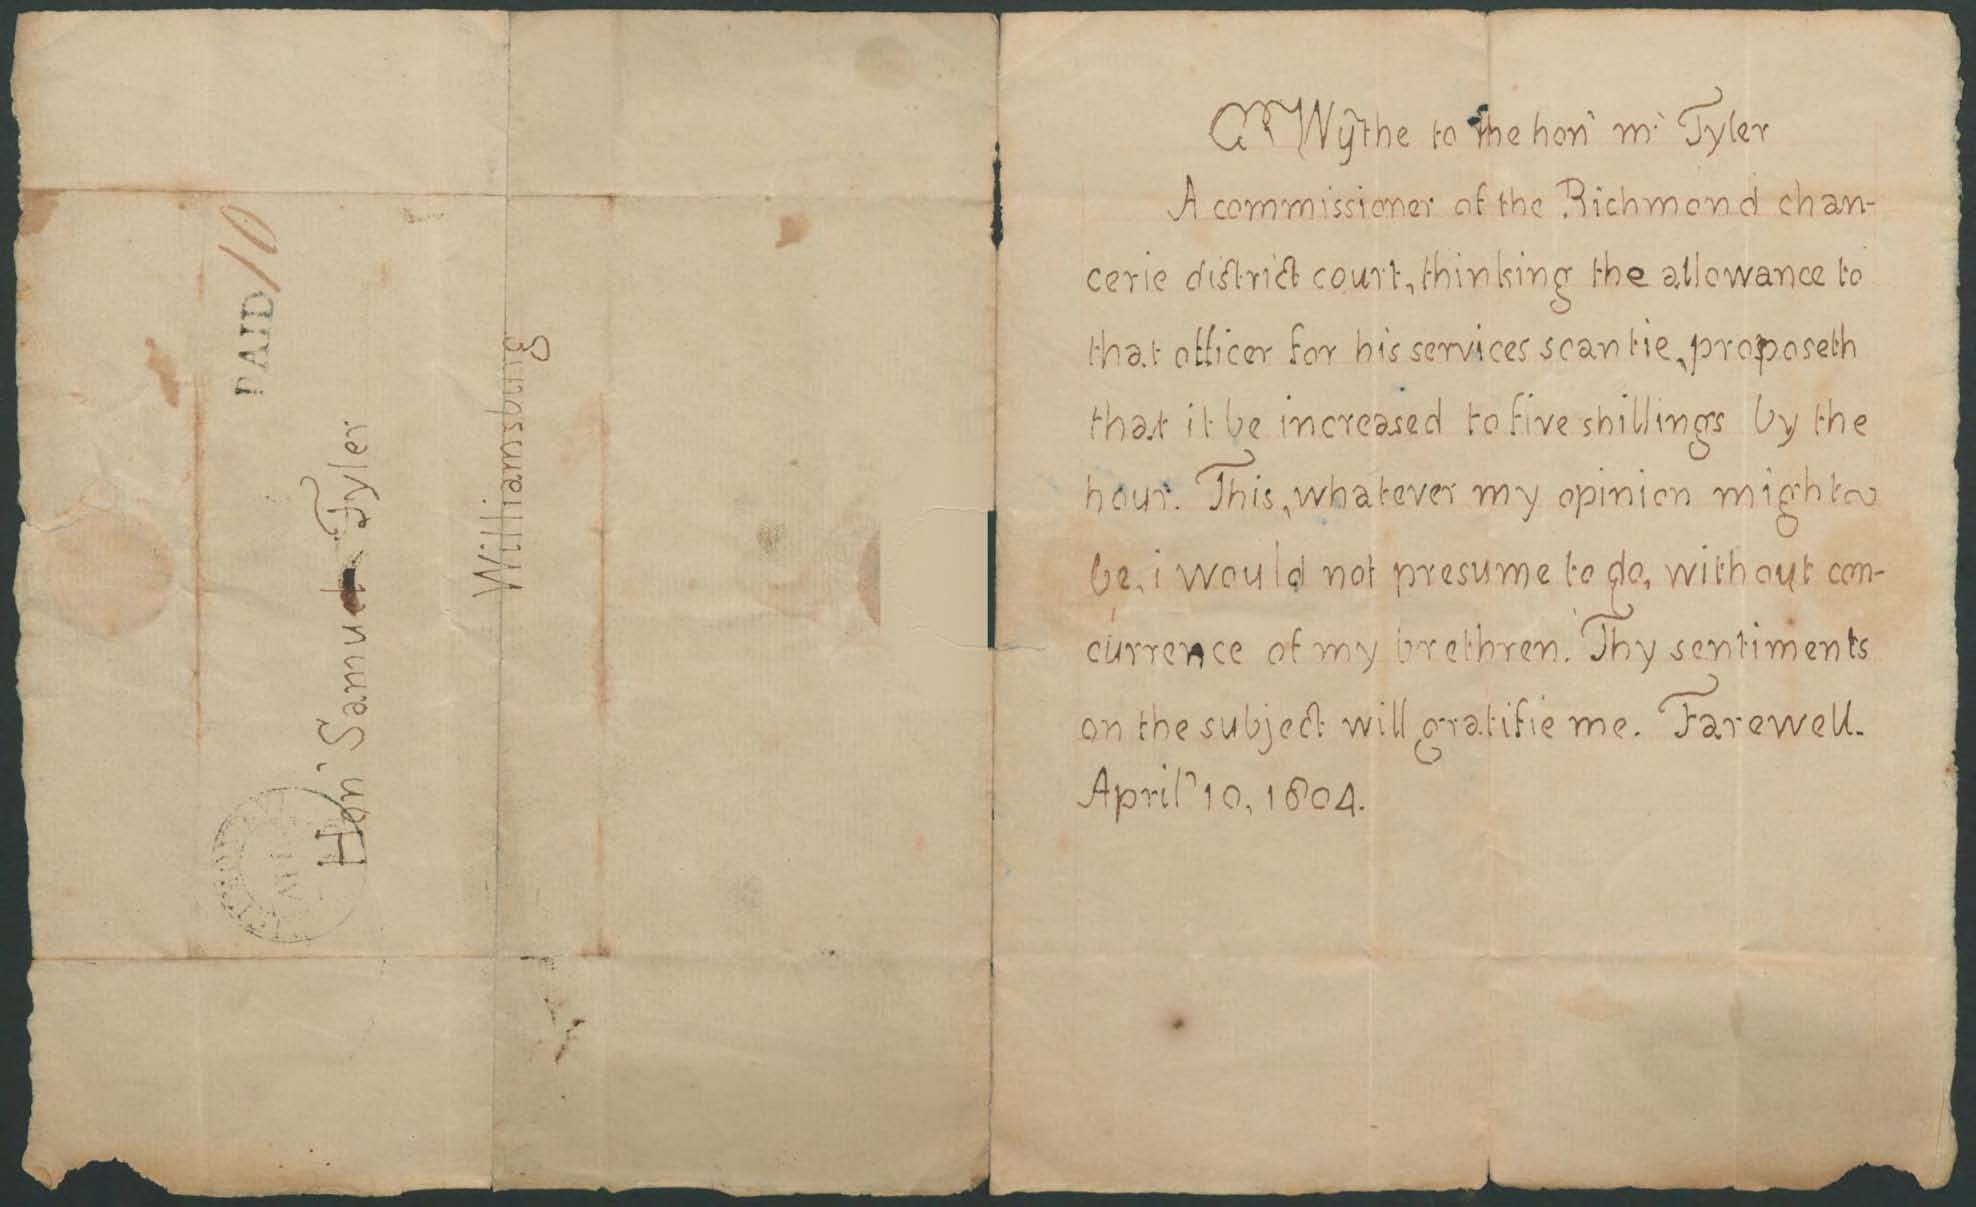 PAID/10
Hon' Samuel Tyler
Williamsburg
G Wythe to the hon' mr Tyler
A commissioner of the Richmond chan-
cerie district court, thinking the allowance to
that officer for his services scantie, proposeth
that it be increased to five shillings by the
hour. This, whatever my opinion might
be, i would not presume to do, without con-
currence of my brethren. Thy sentiments
on the subject will gratifie me. Farewell.
April 10, 1804.